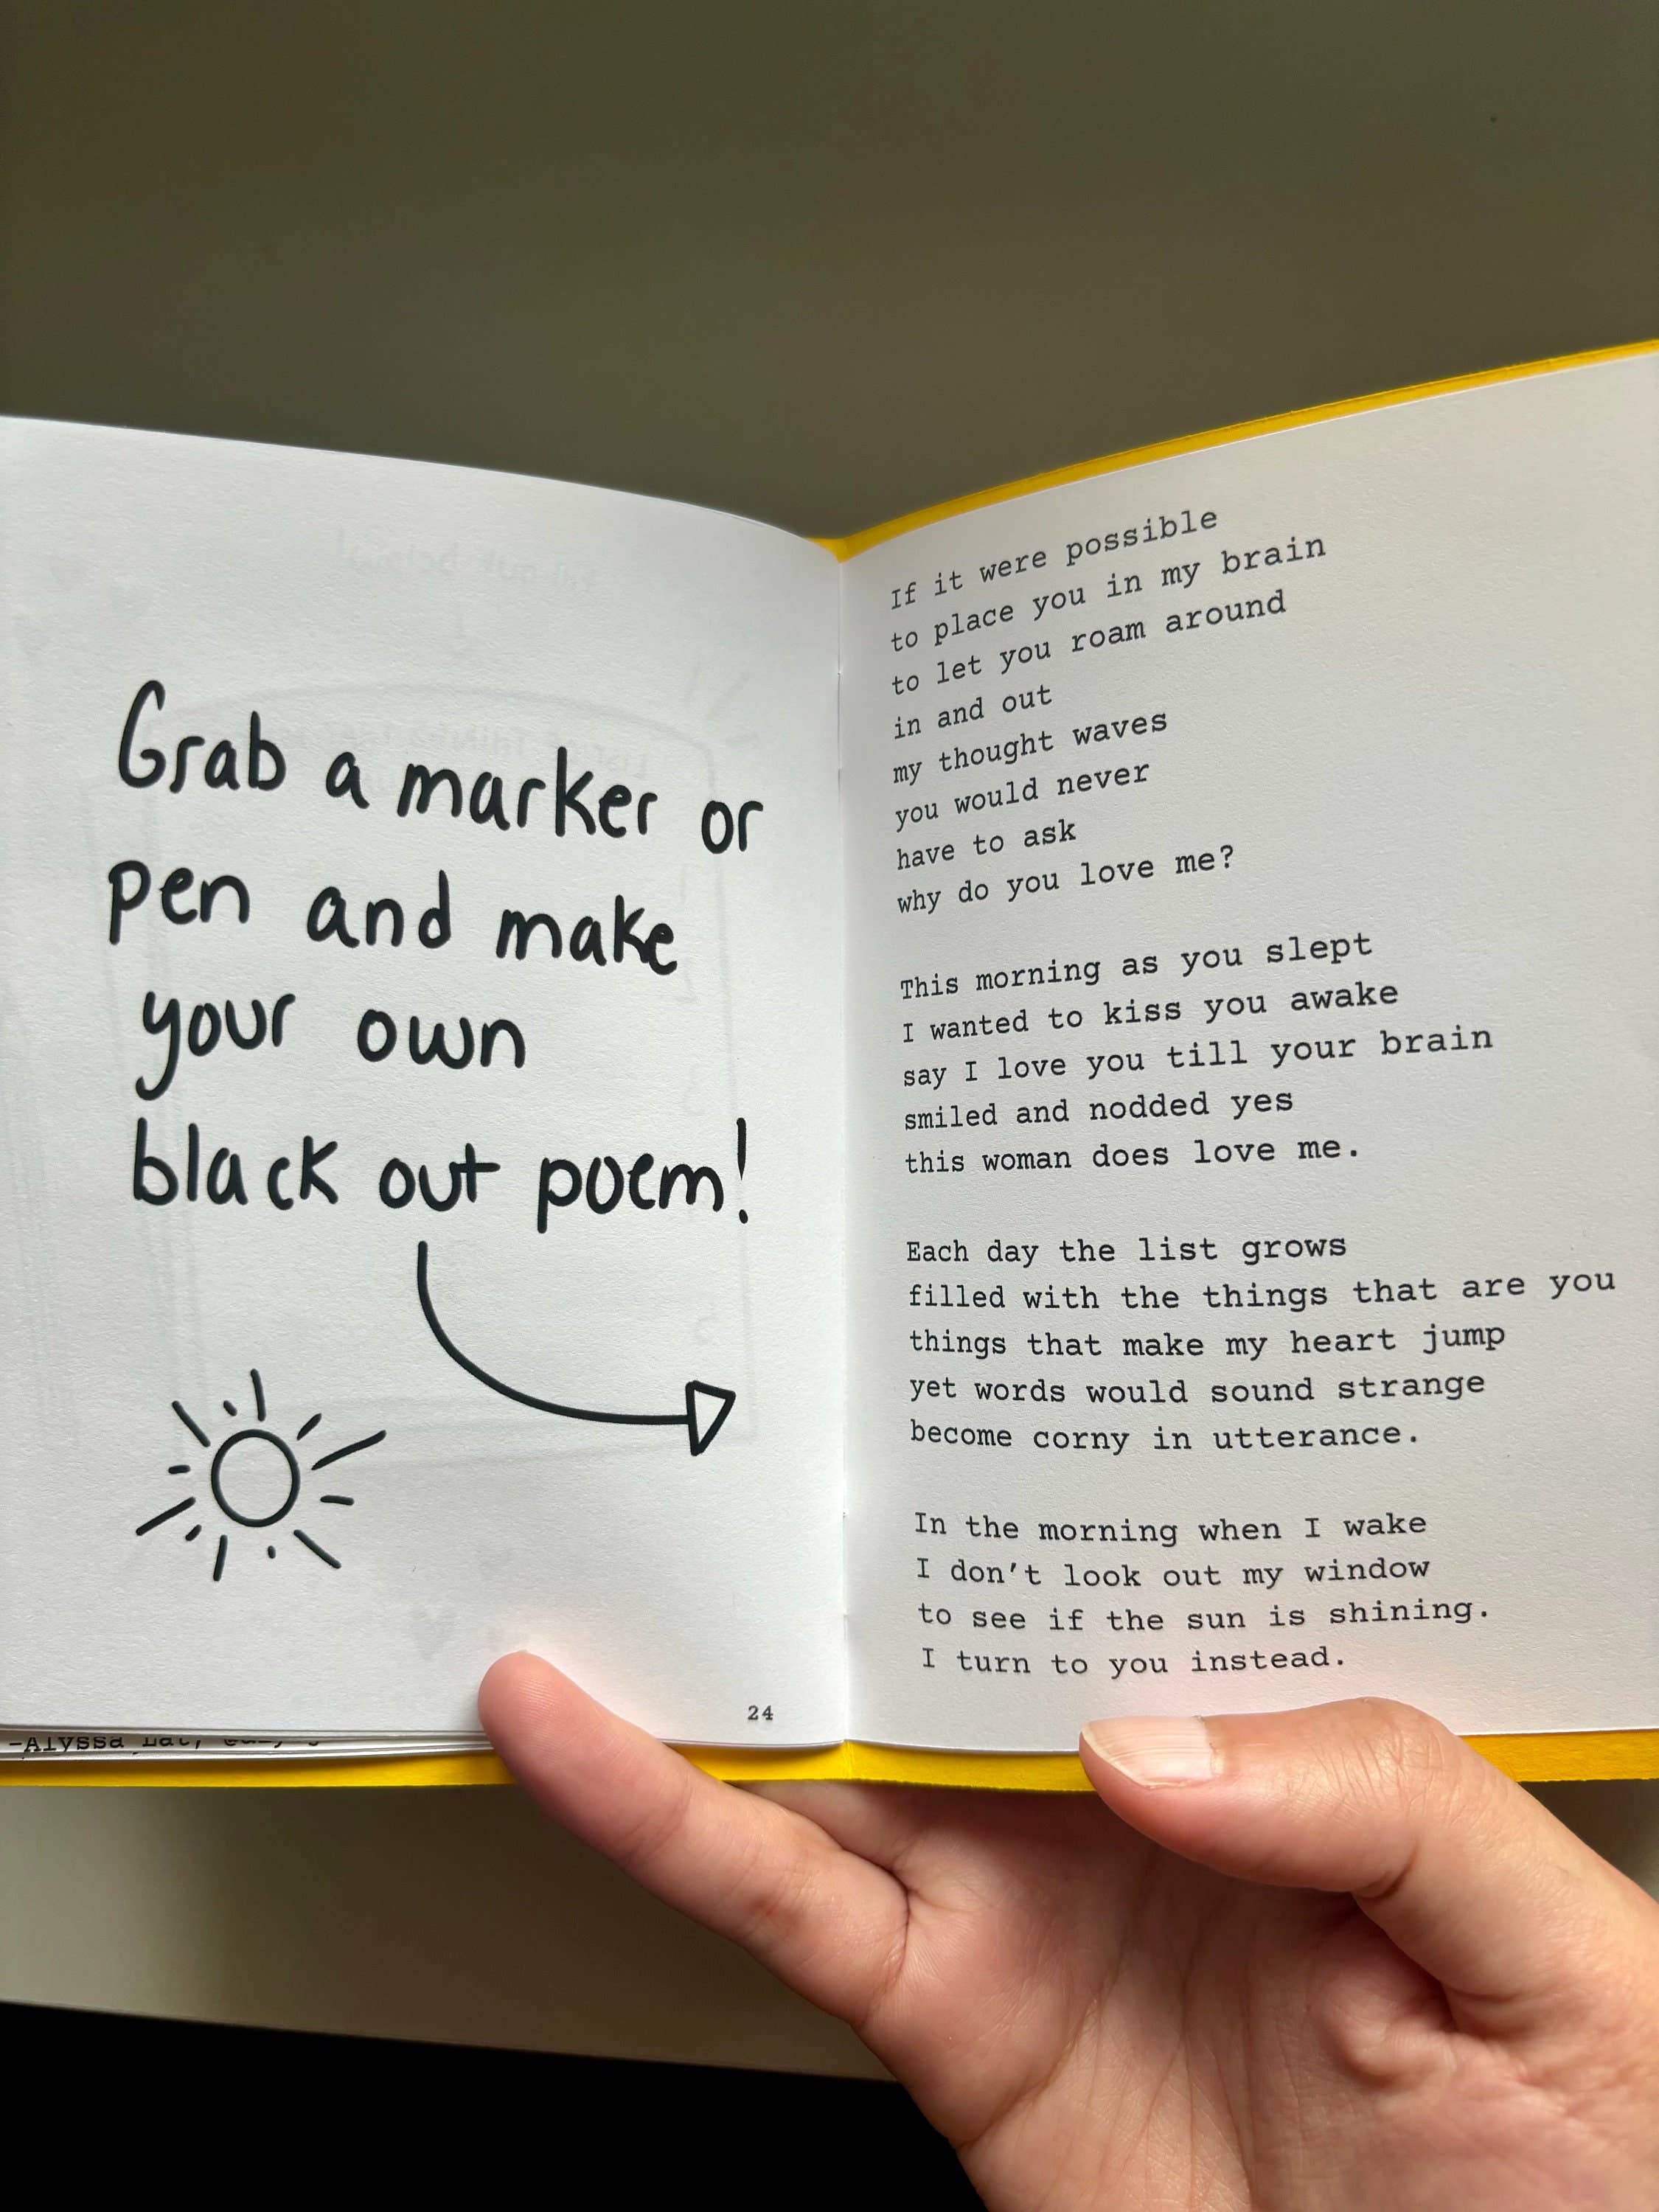 Grab a marker or
pen and make
your own
black out poem!
24
-Alyssa
If it were possible
to place you in my brain
to let you roam around
in and out
my thought waves
you would never
have to ask
why do you love me?
This morning as you slept
I wanted to kiss you awake
say I love you till your brain
smiled and nodded yes
this woman does love me.
Each day the list grows
filled with the things that are you
things that make my heart jump
yet words would sound strange
become corny in utterance.
In the morning when I wake
I don't look out my window
to see if the sun is shining.
I turn to you instead.